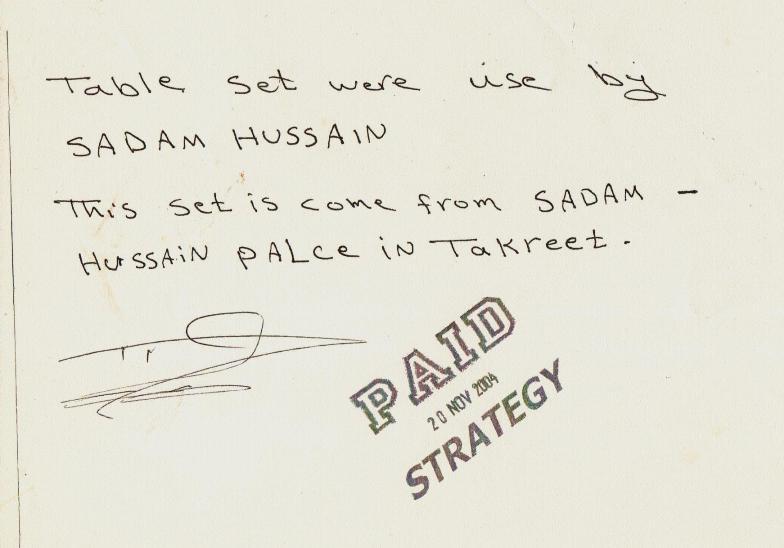 Table set were use by
SADAM HUSSAIN
This set is come from SADAM -
HUSSAIN PALCE iN TaKreet.
PAID
20 NOV 2004
STRATEGY